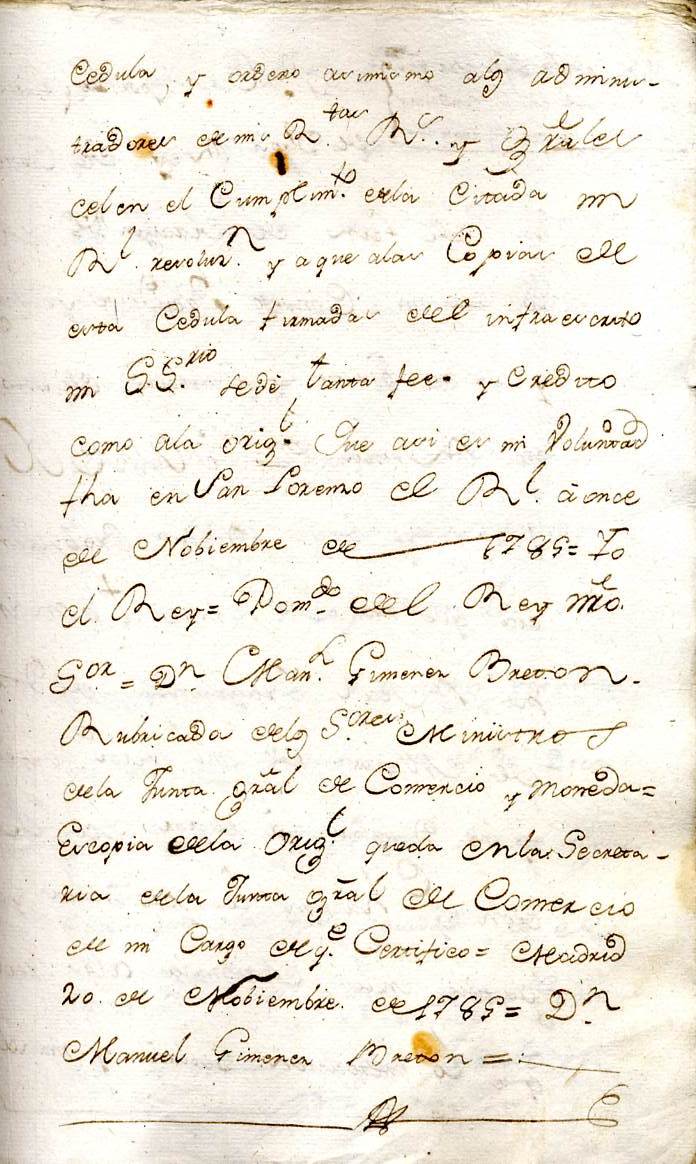 Cedula, y ordeno asimismo alos adminis-
tradores de mis R.tas R.s y Grãles
celen el Cumplim.to dela Citada mi
R.l resoluz.n y a que alas Copias de
esta Cedula firmadas del infraescrito
mi S.S.rio sedè tanta fee y Credito
como ala orig.l Que asi es mi Voluntad
fha en San Lorenzo el R.l à once
de Nobiembre de 1785= Yo
el Rey= Pom.do del Rey Nrõ.
S.or = D.n Man.l Gimenez Breton.
Rubricada delos S.ores Ministros
dela Junta Grãl de Comercio y Moneda=
Es copia dela Orig.l queda enla Secreta-
ria dela Junta Grãl de Comercio
de mi Cargo de q.e Certifico= Madrid
20. de Nobiembre de 1785= D.n
Manuel Gimenez Breton =